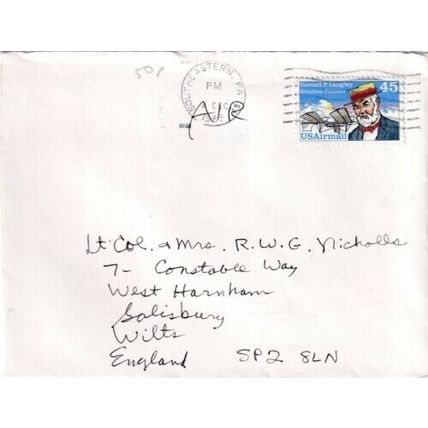 50p
SOUTHEASTERN, PA
PM
DEC
1988
Air
Samuel P. Langley
Aviation Pioneer
45
USAirmail
Lt Col. & Mrs. R.W.G. Nicholls
7 - Constable Way
West Harnham
Salisbury
Wilts
England SP2 8LN